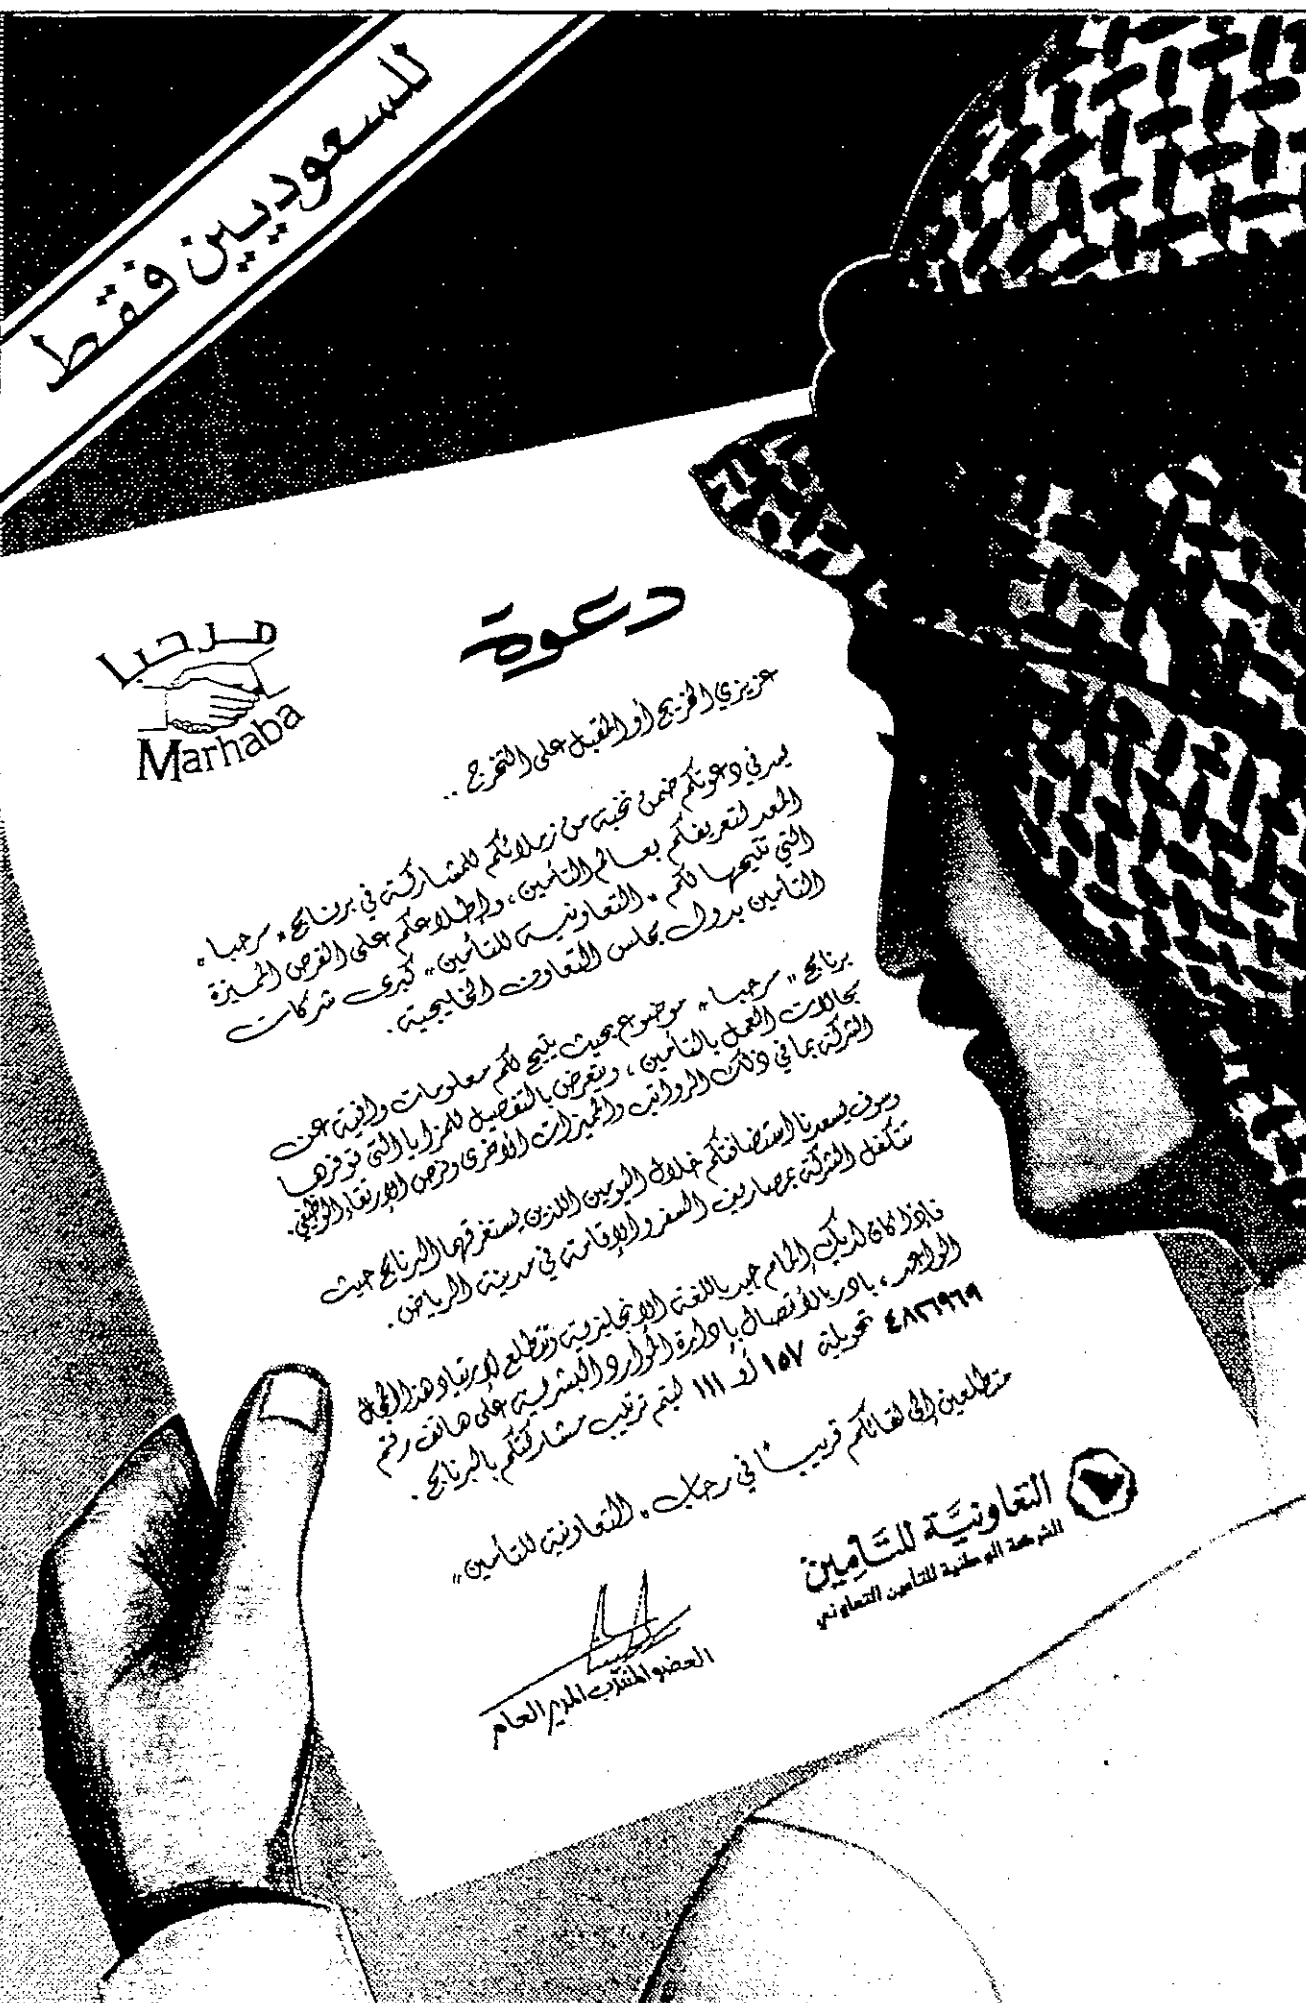 للسعوديين فقط
مرحبا
Marhaba
دعوة
عزيزي الخريج أو المقبل على التخرج ..
يسرني دعوتكم ضمن نخبة من زملائكم للمشاركة في برنامج "مرحبا"
المعد لتعريفكم بعالم التأمين، وإطلاعكم على الفرص المميزة
التي تتيحها لكم "التعاونية للتأمين" كبرى شركات
التأمين بدول مجلس التعاون الخليجية.
برنامج "مرحبا" موضوع بحيث يتيح لكم معلومات وافية عن
مجالات العمل بالتأمين، ويتعرض بالتفصيل للمزايا التي توفرها
الشركة بما في ذلك الرواتب والمميزات الأخرى وفرص الإرتقاء الوظيفي.
وسوف يسعدنا استضافتكم خلال اليومين اللذين يستغرقهما البرنامج حيث
تتكفل الشركة بمصاريف السفر والإقامة في مدينة الرياض.
فإذا كان لديك إلمام جيد باللغة الإنجليزية وتتطلع لإرتياد هذا المجال
الواعد، بادر بالأتصال بإدارة الموارد البشرية على هاتف رقم
٤٨٢٦٩٦٩ تحويلة ١٥٧ أو ١١١ ليتم ترتيب مشاركتكم بالبرنامج.
متطلعين إلى لقائكم قريباً في رحاب "التعاونية للتأمين"
التعاونية للتأمين
الشركة الوطنية للتأمين التعاوني
العضو المنتدب المدير العام